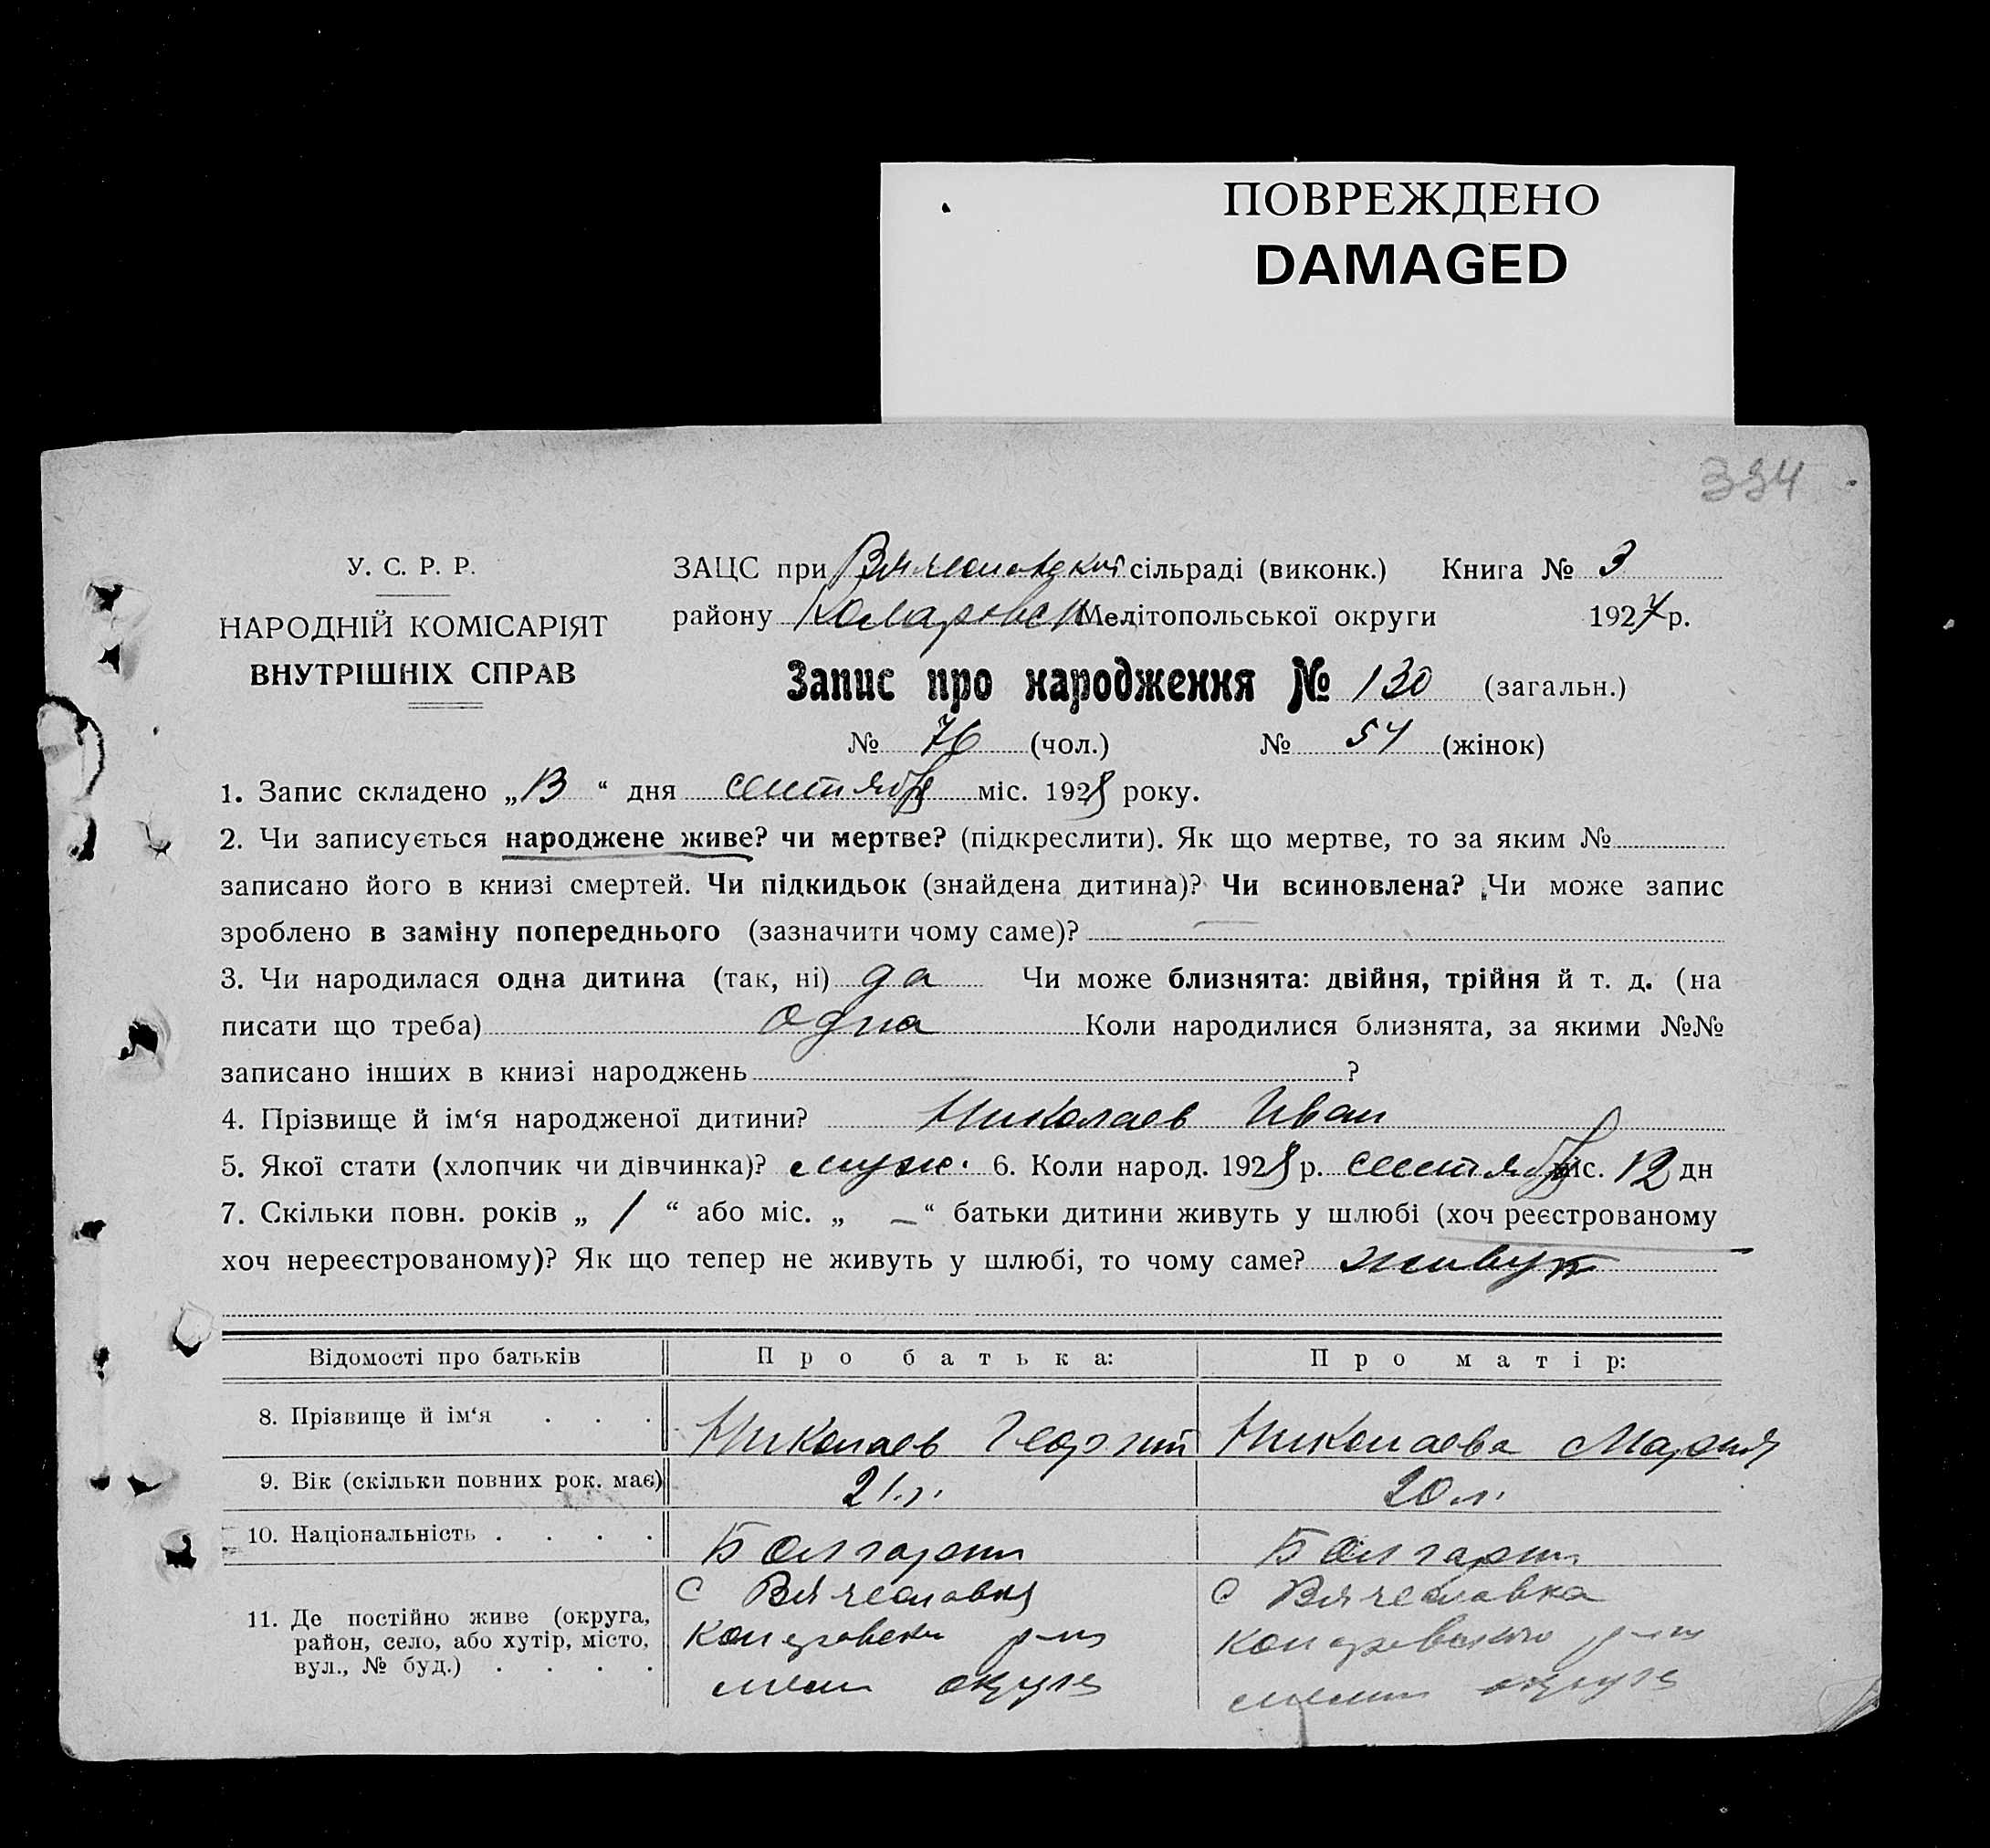 ПОВРЕЖДЕНО
DAMAGED
334
У. С. Р. Р.
НАРОДНІЙ КОМІСАРІЯТ
ВНУТРІШНІХ СПРАВ
ЗАЦС при Вячеславской сільраді (виконк.) Книга № 3
району Коларовск Мелітопольської округи 1927 р.
Запис про народження № 130 (загальн.)
№ 76 (чол.) № 54 (жінок)
1. Запис складено „13“ дня сентября міс. 1928 року.
2. Чи записується народжене живе? чи мертве? (підкреслити). Як що мертве, то за яким №
записано його в книзі смертей. Чи підкидьок (знайдена дитина)? Чи всиновлена? Чи може запис
зроблено в заміну попереднього (зазначити чому саме)? —
3. Чи народилася одна дитина (так, ні) да Чи може близнята: двійня, трійня й т. д. (на
писати що треба) одна Коли народилися близнята, за якими №№
записано інших в книзі народжень ?
4. Прізвище й ім‘я народженої дитини? Николаев Иван
5. Якої стати (хлопчик чи дівчинка)? муж. 6. Коли народ. 1928 р. сентября міс. 12 дн
7. Скільки повн. років „ 1 “ або міс. „ — “ батьки дитини живуть у шлюбі (хоч реєстрованому
хоч нереєстрованому)? Як що тепер не живуть у шлюбі, то чому саме? живут
Відомості про батьків Про батька: Про матір:
8. Прізвище й ім‘я . . . Николаев Георгий Николаева Мария
9. Вік (скільки повних рок. має) 21 г. 20 л.
10. Національність . . . . Болгарин Болгарин
11. Де постійно живе (округа, район, село, або хутір, місто, вул., № буд.) . . . .
с Вячеславка с Вячеславка
Коларовски р-на Коларовского р-на
мел округа мелит округа